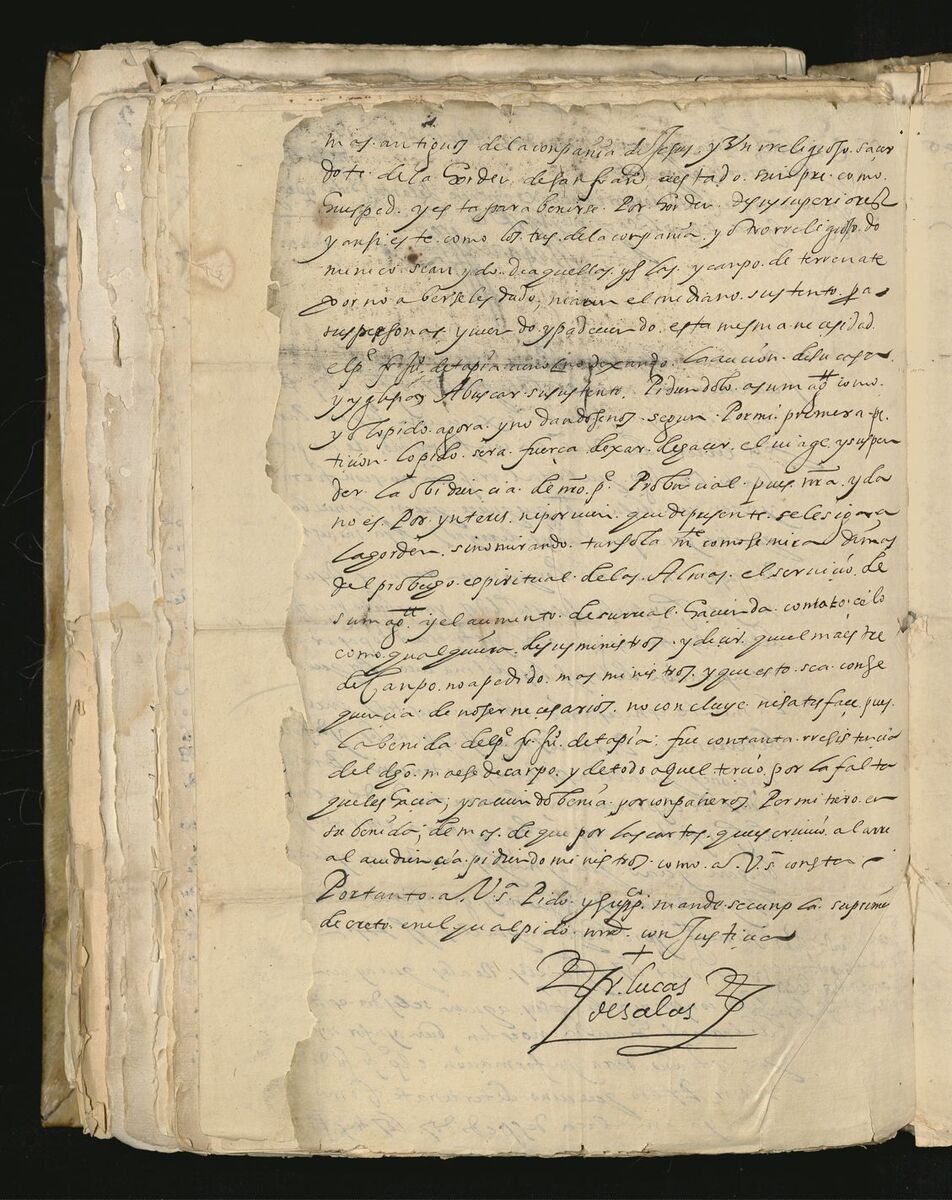 mas antiguos de la conpañia de Jesus, y Un rreligioso sacer
dote de la horden de san fran.co a estado sienpre como
huesped y esta para benirse Por horden de sus superiores
y ansi este como los tres de la conpañia y otro rreligioso do
minico sean ydo de aquellas yslas y canpo de terrenate
por no aberseles dado, ni aun el mediano sustento pa
sus personas, y uiendo y padeciendo esta mesma necesidad
el p.e fr. ju.o de tapia
y yglesia A buscar su sustento. Pidiendolo a su mag.tt como
yo lo pido agora y no dandosenos segun Por mi primera pe
ticion lo pido sera fuerça dexar de hacer el uiage y suspen
der la obidiencia de nro p.e Probincial pues nra yda
no es Por ynteres ni poruenir que de presente se le siga a
la horden sino mirando tan sola m.te como se mira demas
del probecho espiritual de las Almas el seruicio de
su mag.tt y el aumento de su rreal hacienda con tanto celo
como qualquiera de sus ministros y decir que el maestre
de Canpo no a pedido mas ministros y que esto sea conse
quencia de no ser necesarios no concluye ni satisface pues
La benida del p.e fr. ju.o de tapia fue con tanta rresistencia
del dho maese de canpo y de todo aquel tercio por la falta
que les hacia, y sauiendo benia por conpañeros Permitiero en
su benida, demas de que por las cartas que escriuio a la rre
al audiencia pidiendo ministros como a V.s consta
Por tanto a V.s Pido y supp.co mande se cunpla su primer
decreto en el qual pido mrd con Justicia
fr. lucas
de salas